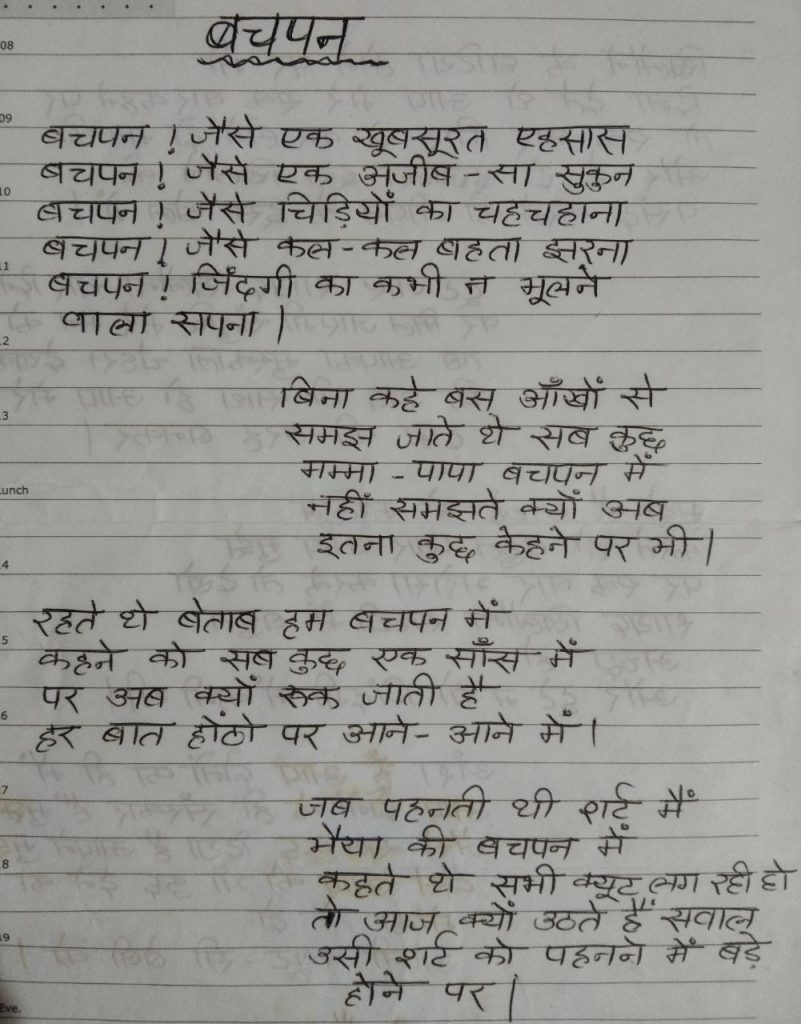 08
बचपन
09
बचपन ! जैसे एक खूबसूरत एहसास
बचपन ! जैसे एक अजीब - सा सुकुन
10
बचपन ! जैसे चिड़ियों का चहचहाना
बचपन ! जैसे कल - कल बहता झरना
बचपन ! जिंदगी का कभी न भूलने
वाला सपना |
बिना कहे बस आँखों से
समझ जाते थे सब कुछ
मम्मा - पापा बचपन में
unch
नहीं समझते क्यों अब
इतना कुछ केहने पर भी |
रहते थे बेताब हम बचपन में
कहने को सब कुछ एक साँस में
पर अब क्यों रूक जाती है
हर बात होंठो पर आने - आने में |
जब पहनती थी शर्ट मैं
भैया की बचपन में
कहते थे सभी क्यूट लग रही हो
तो आज क्यों उठते हैं सवाल
उसी शर्ट को पहनने में बड़े
होने पर |
Eve.